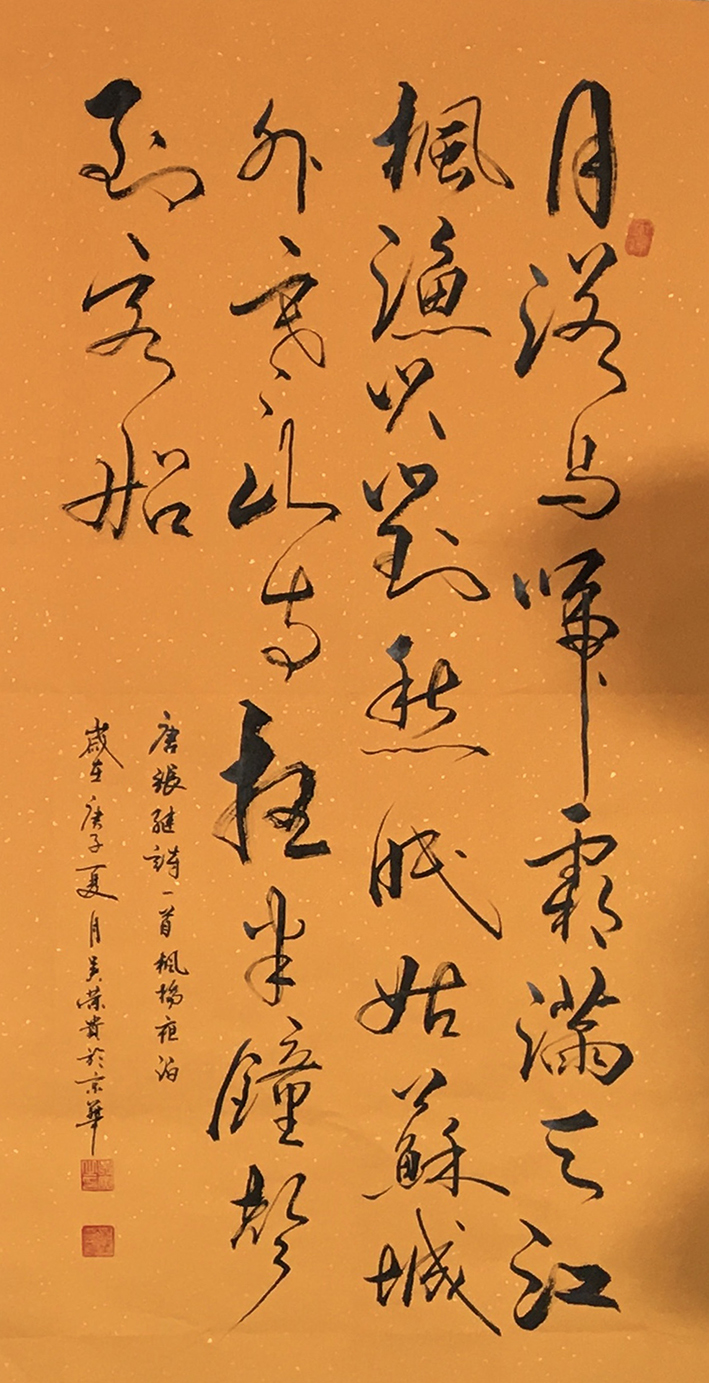 月落烏啼霜滿天江
楓漁火對愁眠姑蘇城
外寒山寺夜半鐘聲
到客船
唐張継詩一首楓橋夜泊
歲在庚子夏月吴榮貴於京華